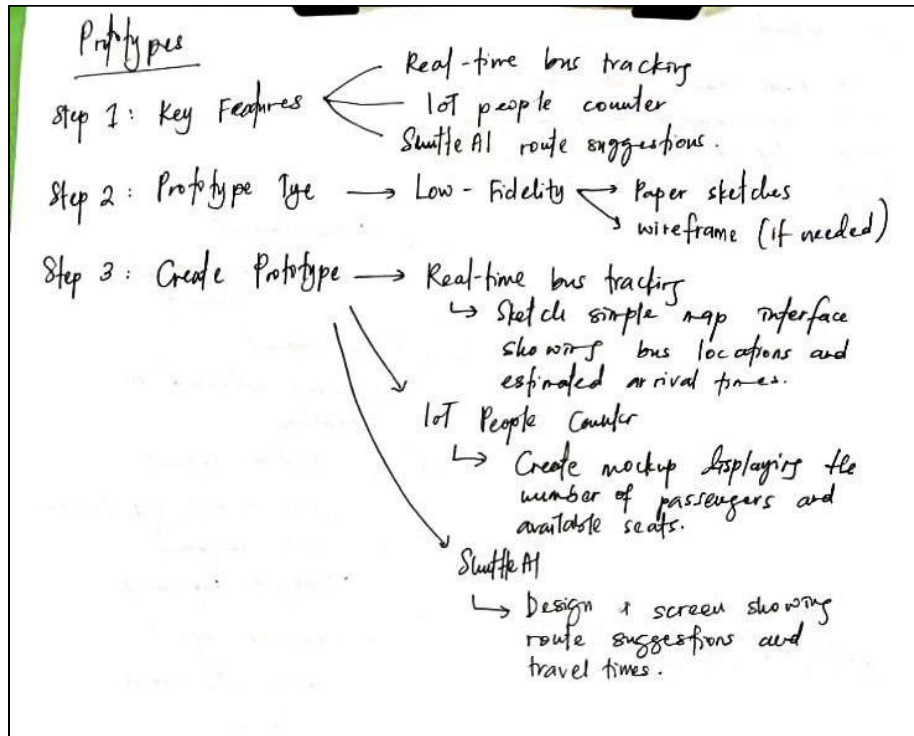 Prototypes
Step 1: Key Features
Real-time bus tracking
IoT people counter
ShuttleAI route suggestions.
Step 2: Prototype Tye → Low-Fidelity → Paper sketches
→ wireframe (if needed)
Step 3: Create Prototype → Real-time bus tracking
↳ Sketch simple map interface
showing bus locations and
estimated arrival times.
IoT People Counter
↳ Create mockup displaying the
number of passengers and
available seats.
ShuttleAI
↳ Design a screen showing
route suggestions and
travel times.